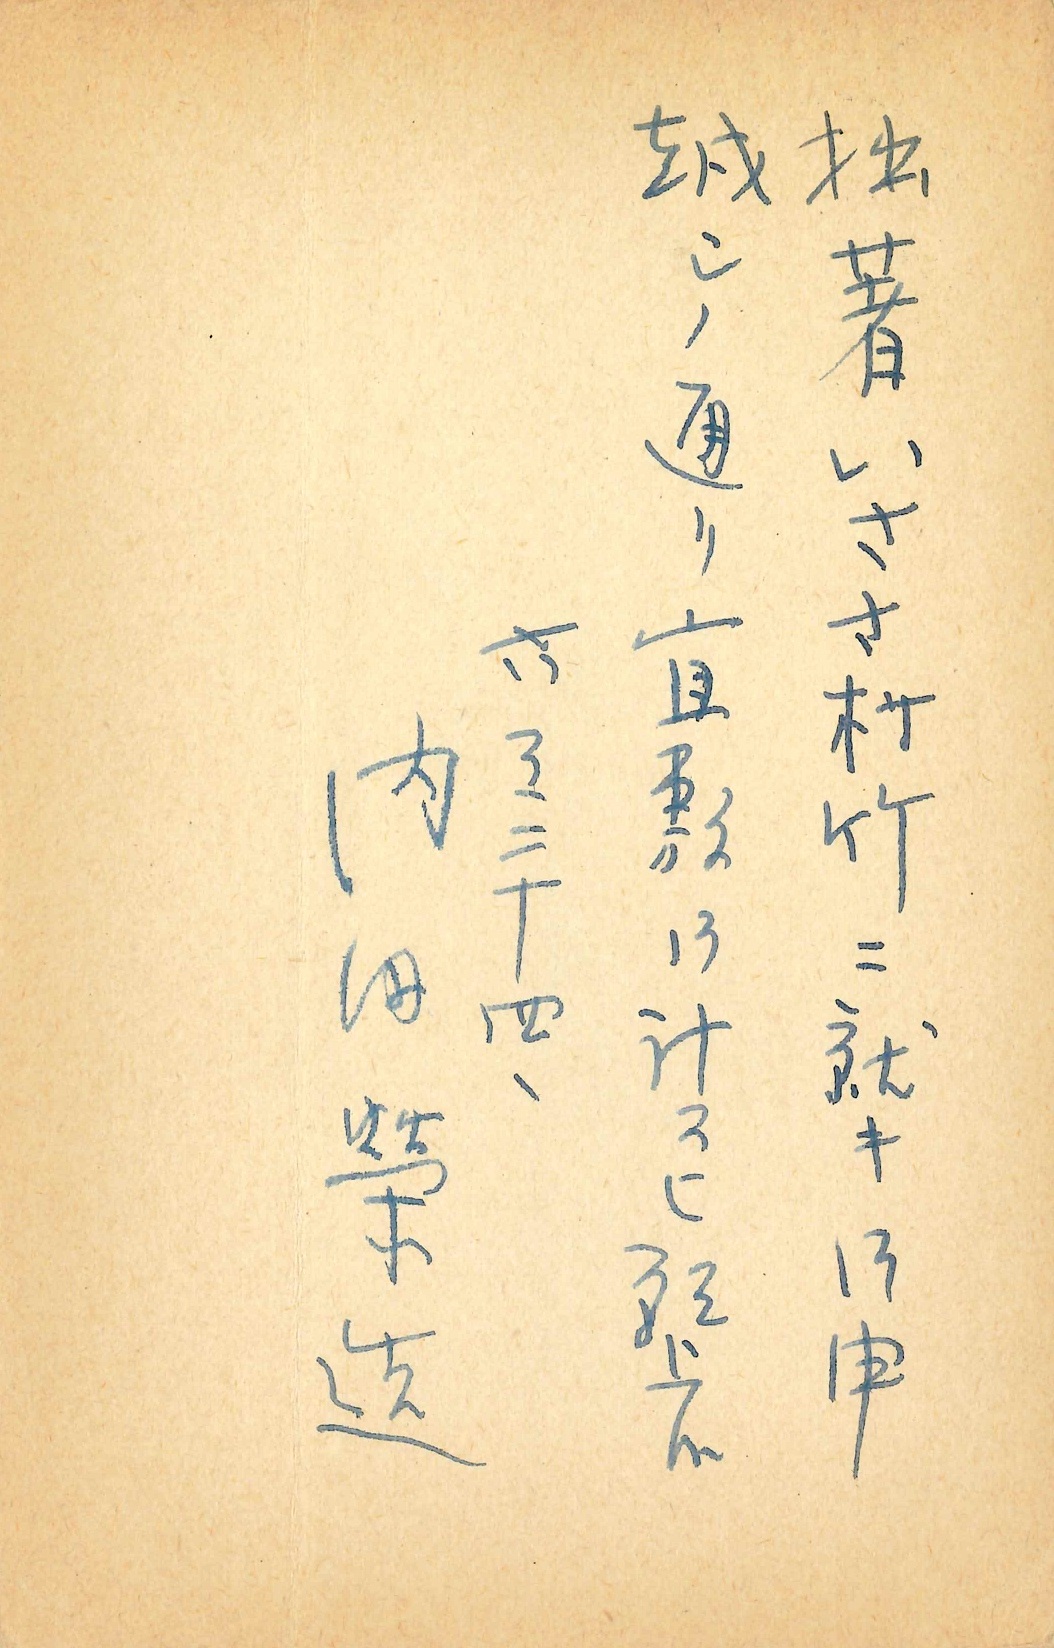 拙著いささ村竹ニ就キ御申
越シノ通リ宜敷御計ラヒ願上候
六月二十四日
内田榮造